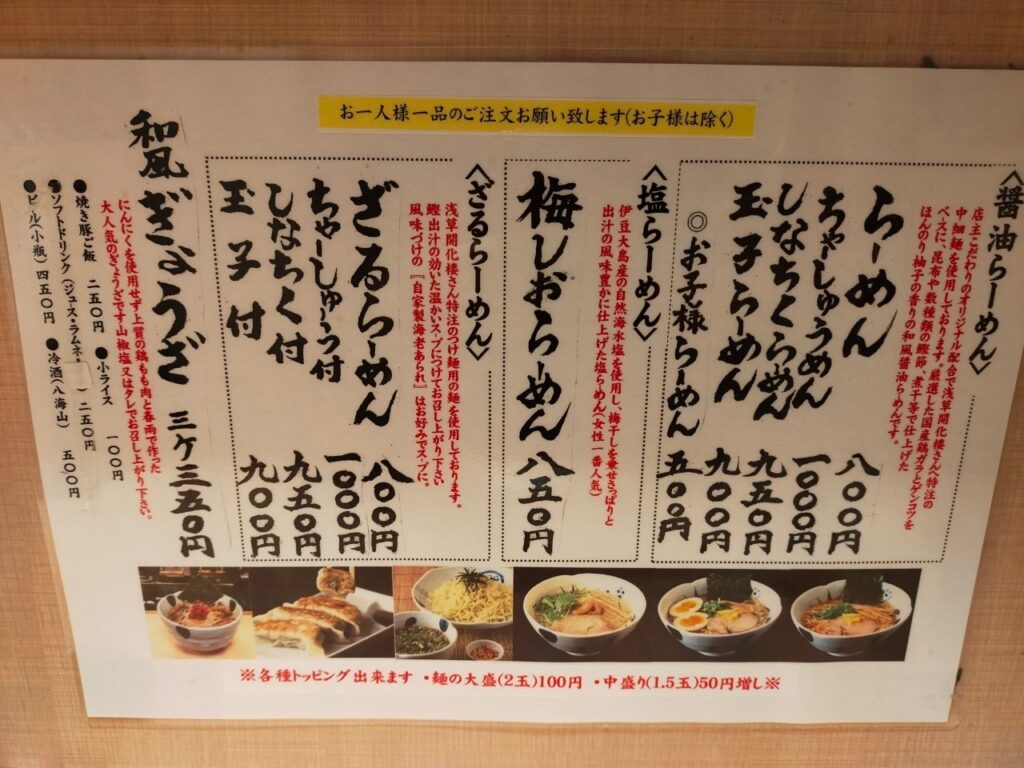 お一人様一品のご注文お願い致します(お子様は除く)
〈醤油らーめん〉
店主こだわりのオリジナル配合で浅草開化楼さんへ特注の
中細麺を使用しております。厳選した国産鶏ガラとゲンコツを
ベースに、昆布や数種類の鰹節、煮干等で仕上げた
ほんのり柚子の香りの和風醤油らーめんです。
らーめん 八〇〇円
ちゃーしゅうめん 一〇〇〇円
しなちくらーめん 九五〇円
玉子らーめん 九〇〇円
◎お子様らーめん 五〇〇円
〈塩らーめん〉
伊豆大島産の自然海水塩を使用し、梅干しを乗せさっぱりと
出汁の風味豊かに仕上げた塩らーめん(女性一番人気)
梅しおらーめん 八五〇円
〈ざるらーめん〉
浅草開化楼さん特注のつけ麺用の麺を使用しております。
鰹出汁の効いた温かいスープにつけてお召し上がり下さい
風味づけの『自家製海老あられ』はお好みでスープに。
ざるらーめん 八〇〇円
ちゃーしゅう付 一〇〇〇円
しなちく付 九五〇円
玉子付 九〇〇円
和風ぎょうざ 三ケ三五〇円
にんにくを使用せず上質の鶏もも肉と春雨で作った
大人気のぎょうざです山椒塩又はタレでお召し上がり下さい。
●焼き豚ご飯 二五〇円 ●小ライス 一〇〇円
●ソフトドリンク(ジュース・ラムネ・ 二五〇円
●ビール(小瓶)四五〇円 ●冷酒(八海山) 五〇〇円
※各種トッピング出来ます ・麺の大盛(2玉)100円 ・中盛り(1.5玉)50円増し※